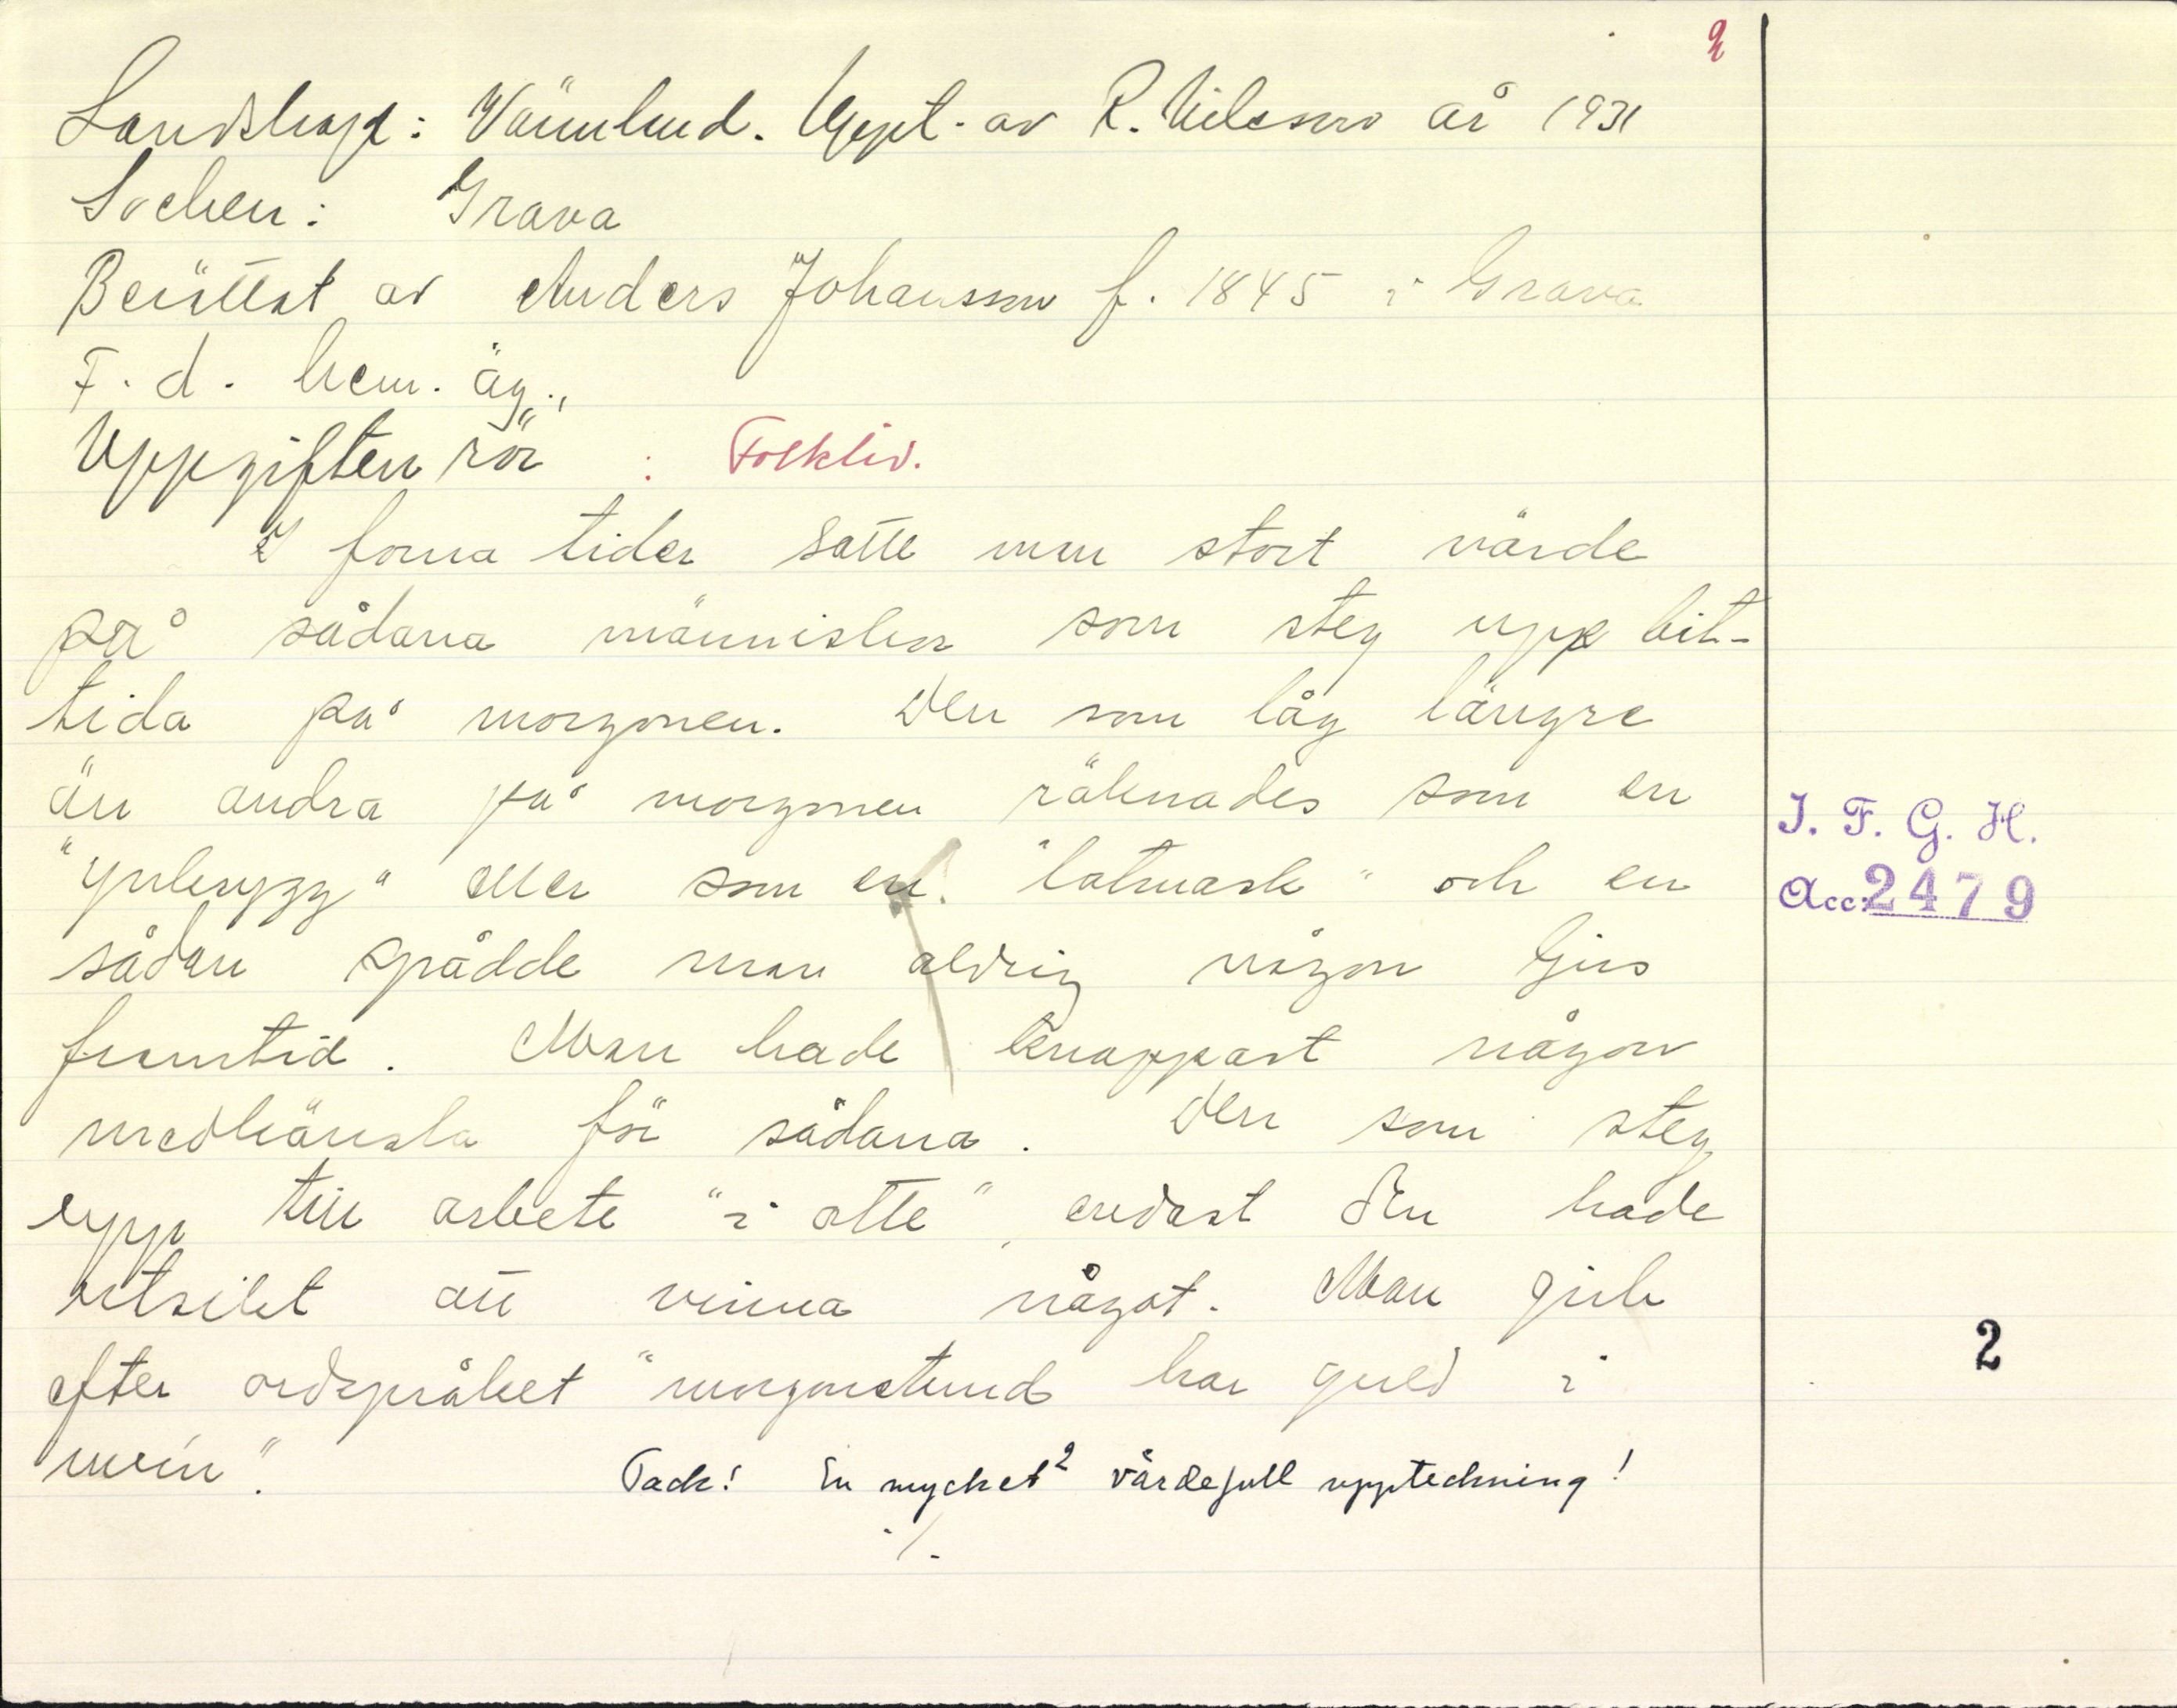 2
Landskap: Värmland. Uppt. av R. Nilsson år 1931
Socken: Grava
Berättat av Anders Johansson f. 1845 i Grava
F. d. hem. äg.,
Uppgiften rör : Folkliv.
I forna tider satte man stort värde
på sådana människor som steg upp bit-
tida på morgonen. Den som låg längre
än andra på morgonen räknades som en
"ynkrygg" eller som en "latmask" och en
sådan spådde man aldrig någon ljus
framtid. Man hade knappast någon
medkänsla för sådana. Den som steg
upp till arbete "i otte", endast den hade
utsikt att vinna något. Man gick
efter ordspråket "morgonstund har guld i
mun".
Tack! En mycket² värdefull uppteckning!
./.
I. F. G. H.
Acc: 2479
2